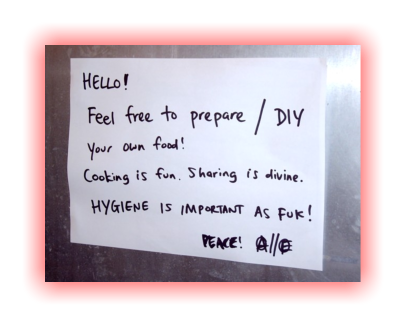 HELLO!
Feel free to prepare / DIY
your own food!
Cooking is fun. Sharing is divine.
HYGIENE IS IMPORTANT AS FUK!
PEACE! Ⓐ//Ⓔ